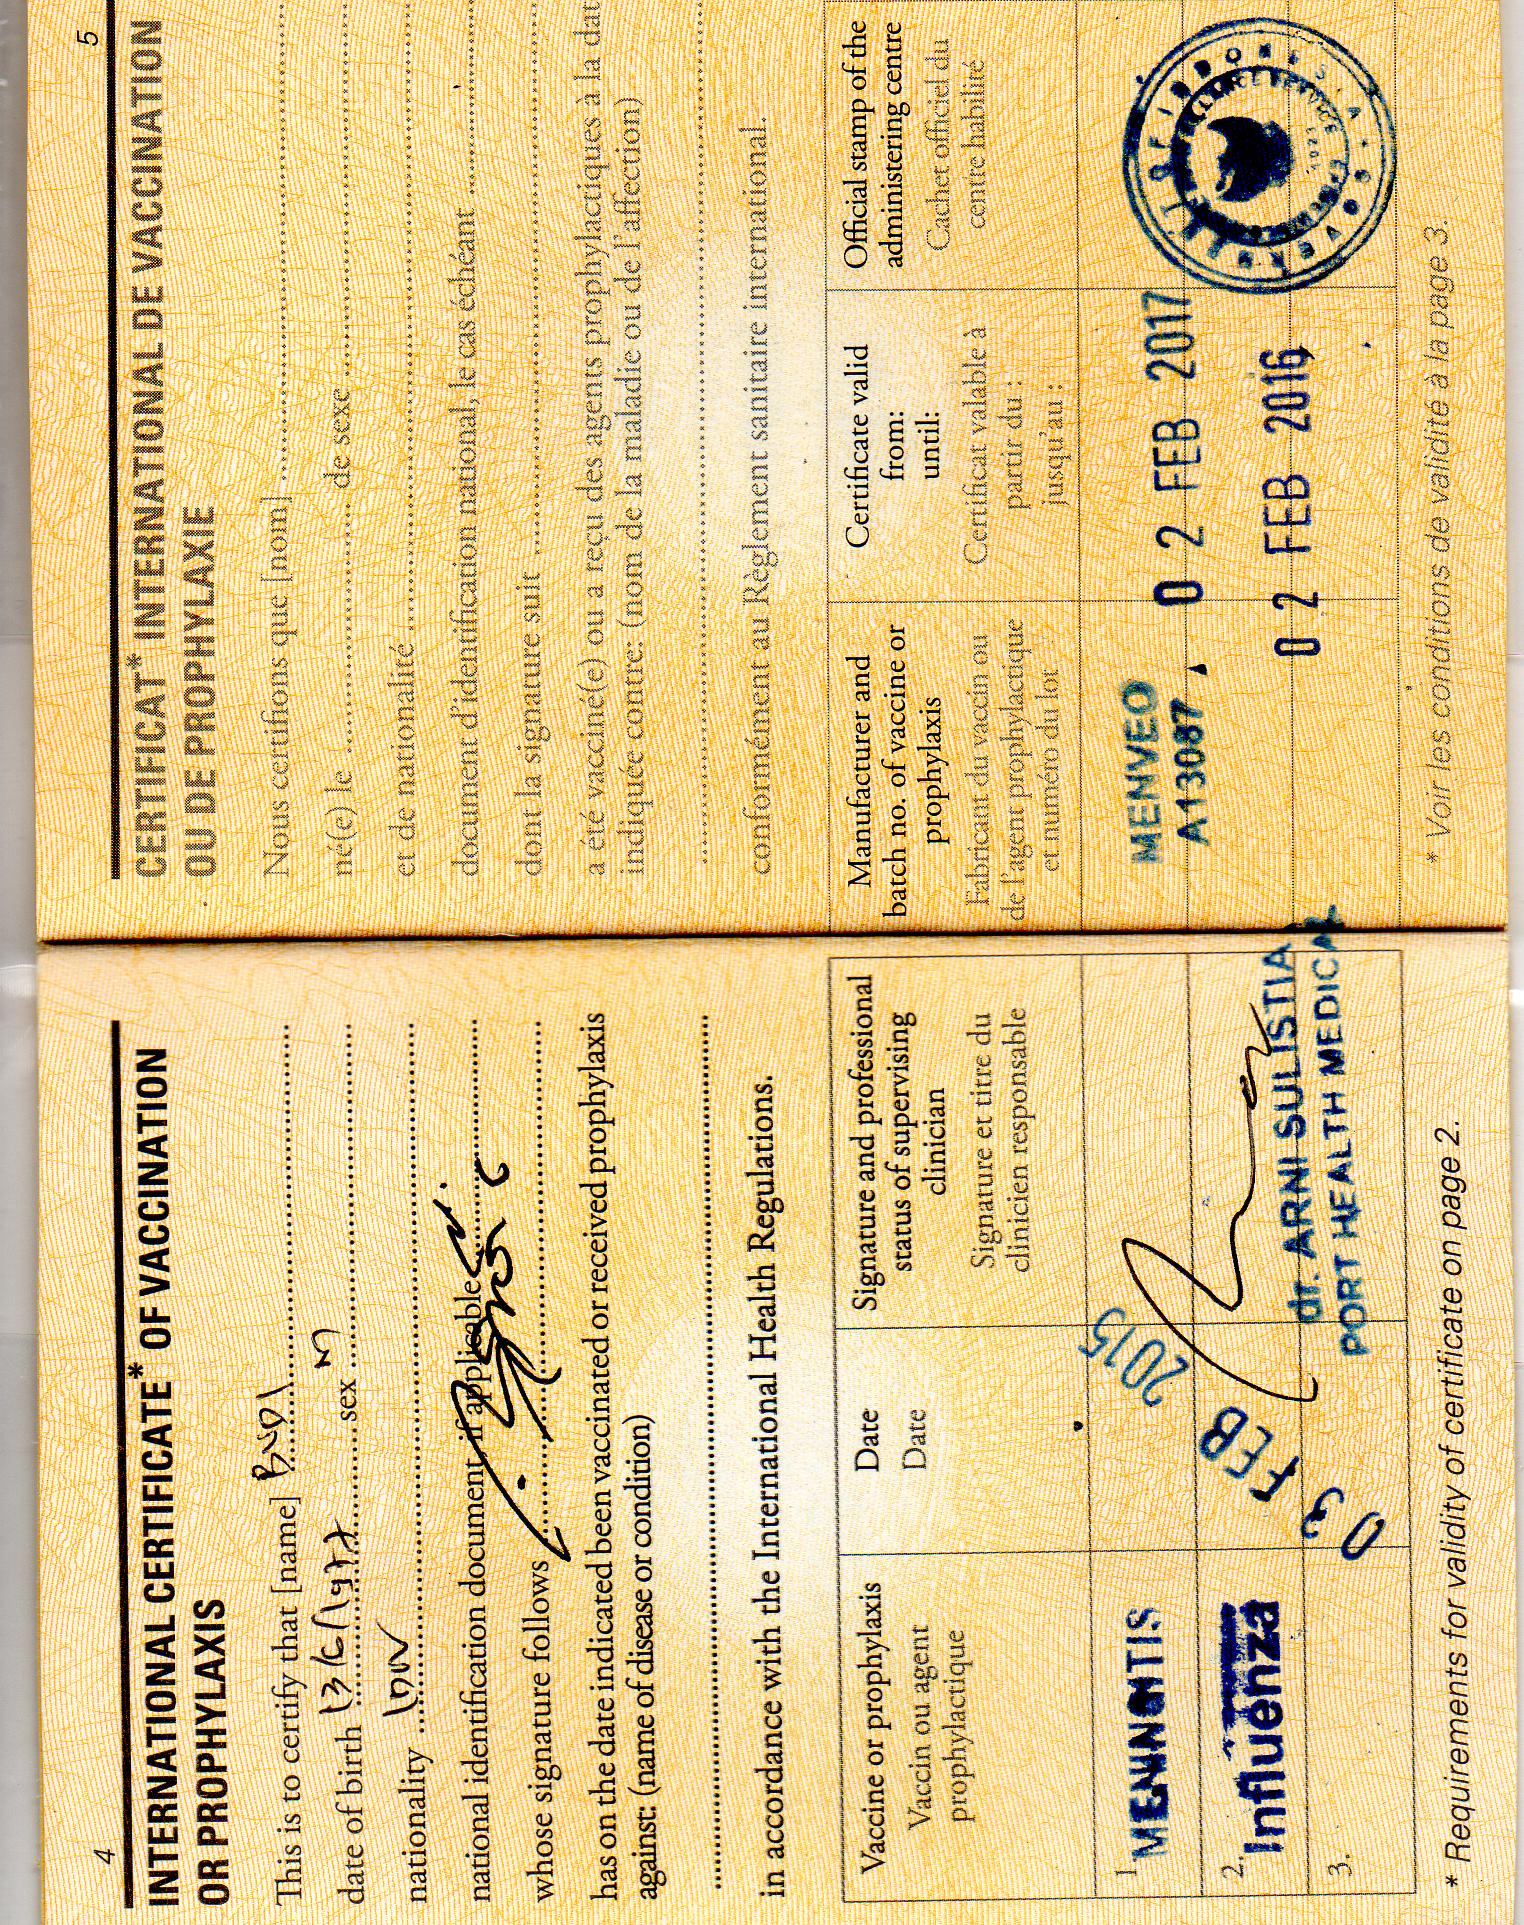 4
INTERNATIONAL CERTIFICATE* OF VACCINATION
OR PROPHYLAXIS
This is to certify that [name] BUDI
date of birth sex M
nationality
national identification document, if applicable
whose signature follows
has on the date indicated been vaccinated or received prophylaxis
against: (name of disease or condition)
in accordance with the International Health Regulations.
Vaccine or prophylaxis
Vaccin ou agent
prophylactique
Date
Date
Signature and professional
status of supervising
clinician
Signature et titre du
clinicien responsable
1.
MENINGITIS
2.
Influenza
3.
03 FEB 2015
dr. ARNI SULISTIA
PORT HEALTH MEDICAL
* Requirements for validity of certificate on page 2.
5
CERTIFICAT* INTERNATIONAL DE VACCINATION
OU DE PROPHYLAXIE
Nous certifions que [nom]
né(e) le de sexe
et de nationalité
document d'identification national, le cas échéant
dont la signature suit
a été vacciné(e) ou a reçu des agents prophylactiques à la dat
indiquée contre: (nom de la maladie ou de l'affection)
conformément au Règlement sanitaire international.
Manufacturer and
batch no. of vaccine or
prophylaxis
Fabricant du vaccin ou
de l'agent prophylactique
et numéro du lot
Certificate valid
from:
until:
Certificat valable à
partir du :
jusqu'au :
Official stamp of the
administering centre
Cachet officiel du
centre habilité
MENVEO
A13087
02 FEB 2017
02 FEB 2016
OF INDONESIA
* Voir les conditions de validité à la page 3.